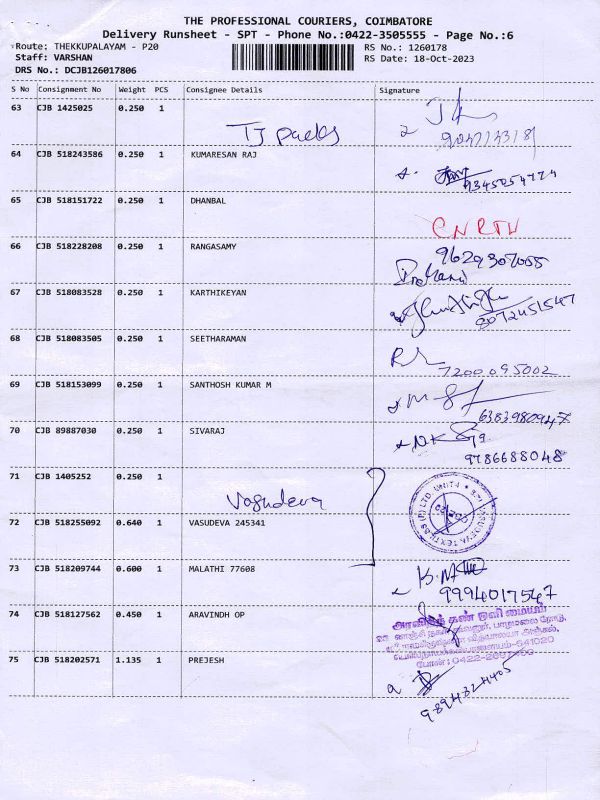 THE PROFESSIONAL COURIERS, COIMBATORE
Delivery Runsheet - SPT - Phone No.:0422-3505555 - Page No.:6
Route: THEKKUPALAYAM - P20 RS No.: 1260178
Staff: VARSHAN RS Date: 18-Oct-2023
DRS No.: DCJB126017806
S No Consignment No Weight PCS Consignee Details Signature
63 CJB 1425025 0.250 1
TJ packs
64 CJB 518243586 0.250 1 KUMARESAN RAJ
65 CJB 518151722 0.250 1 DHANBAL
CNRTN
66 CJB 518228208 0.250 1 RANGASAMY
9629307055
67 CJB 518083528 0.250 1 KARTHIKEYAN
8072451547
68 CJB 518083505 0.250 1 SEETHARAMAN
7200095002
69 CJB 518153099 0.250 1 SANTHOSH KUMAR M
6383980947
70 CJB 89887030 0.250 1 SIVARAJ
9786688048
71 CJB 1405252 0.250 1
Vasudeva
72 CJB 518255092 0.640 1 VASUDEVA 245341
73 CJB 518209744 0.600 1 MALATHI 77608
9994017547
74 CJB 518127562 0.450 1 ARAVINDH OP
அரவிந்த் கண் ஒளி மையம்
75 CJB 518202571 1.135 1 PREJESH
9894324405